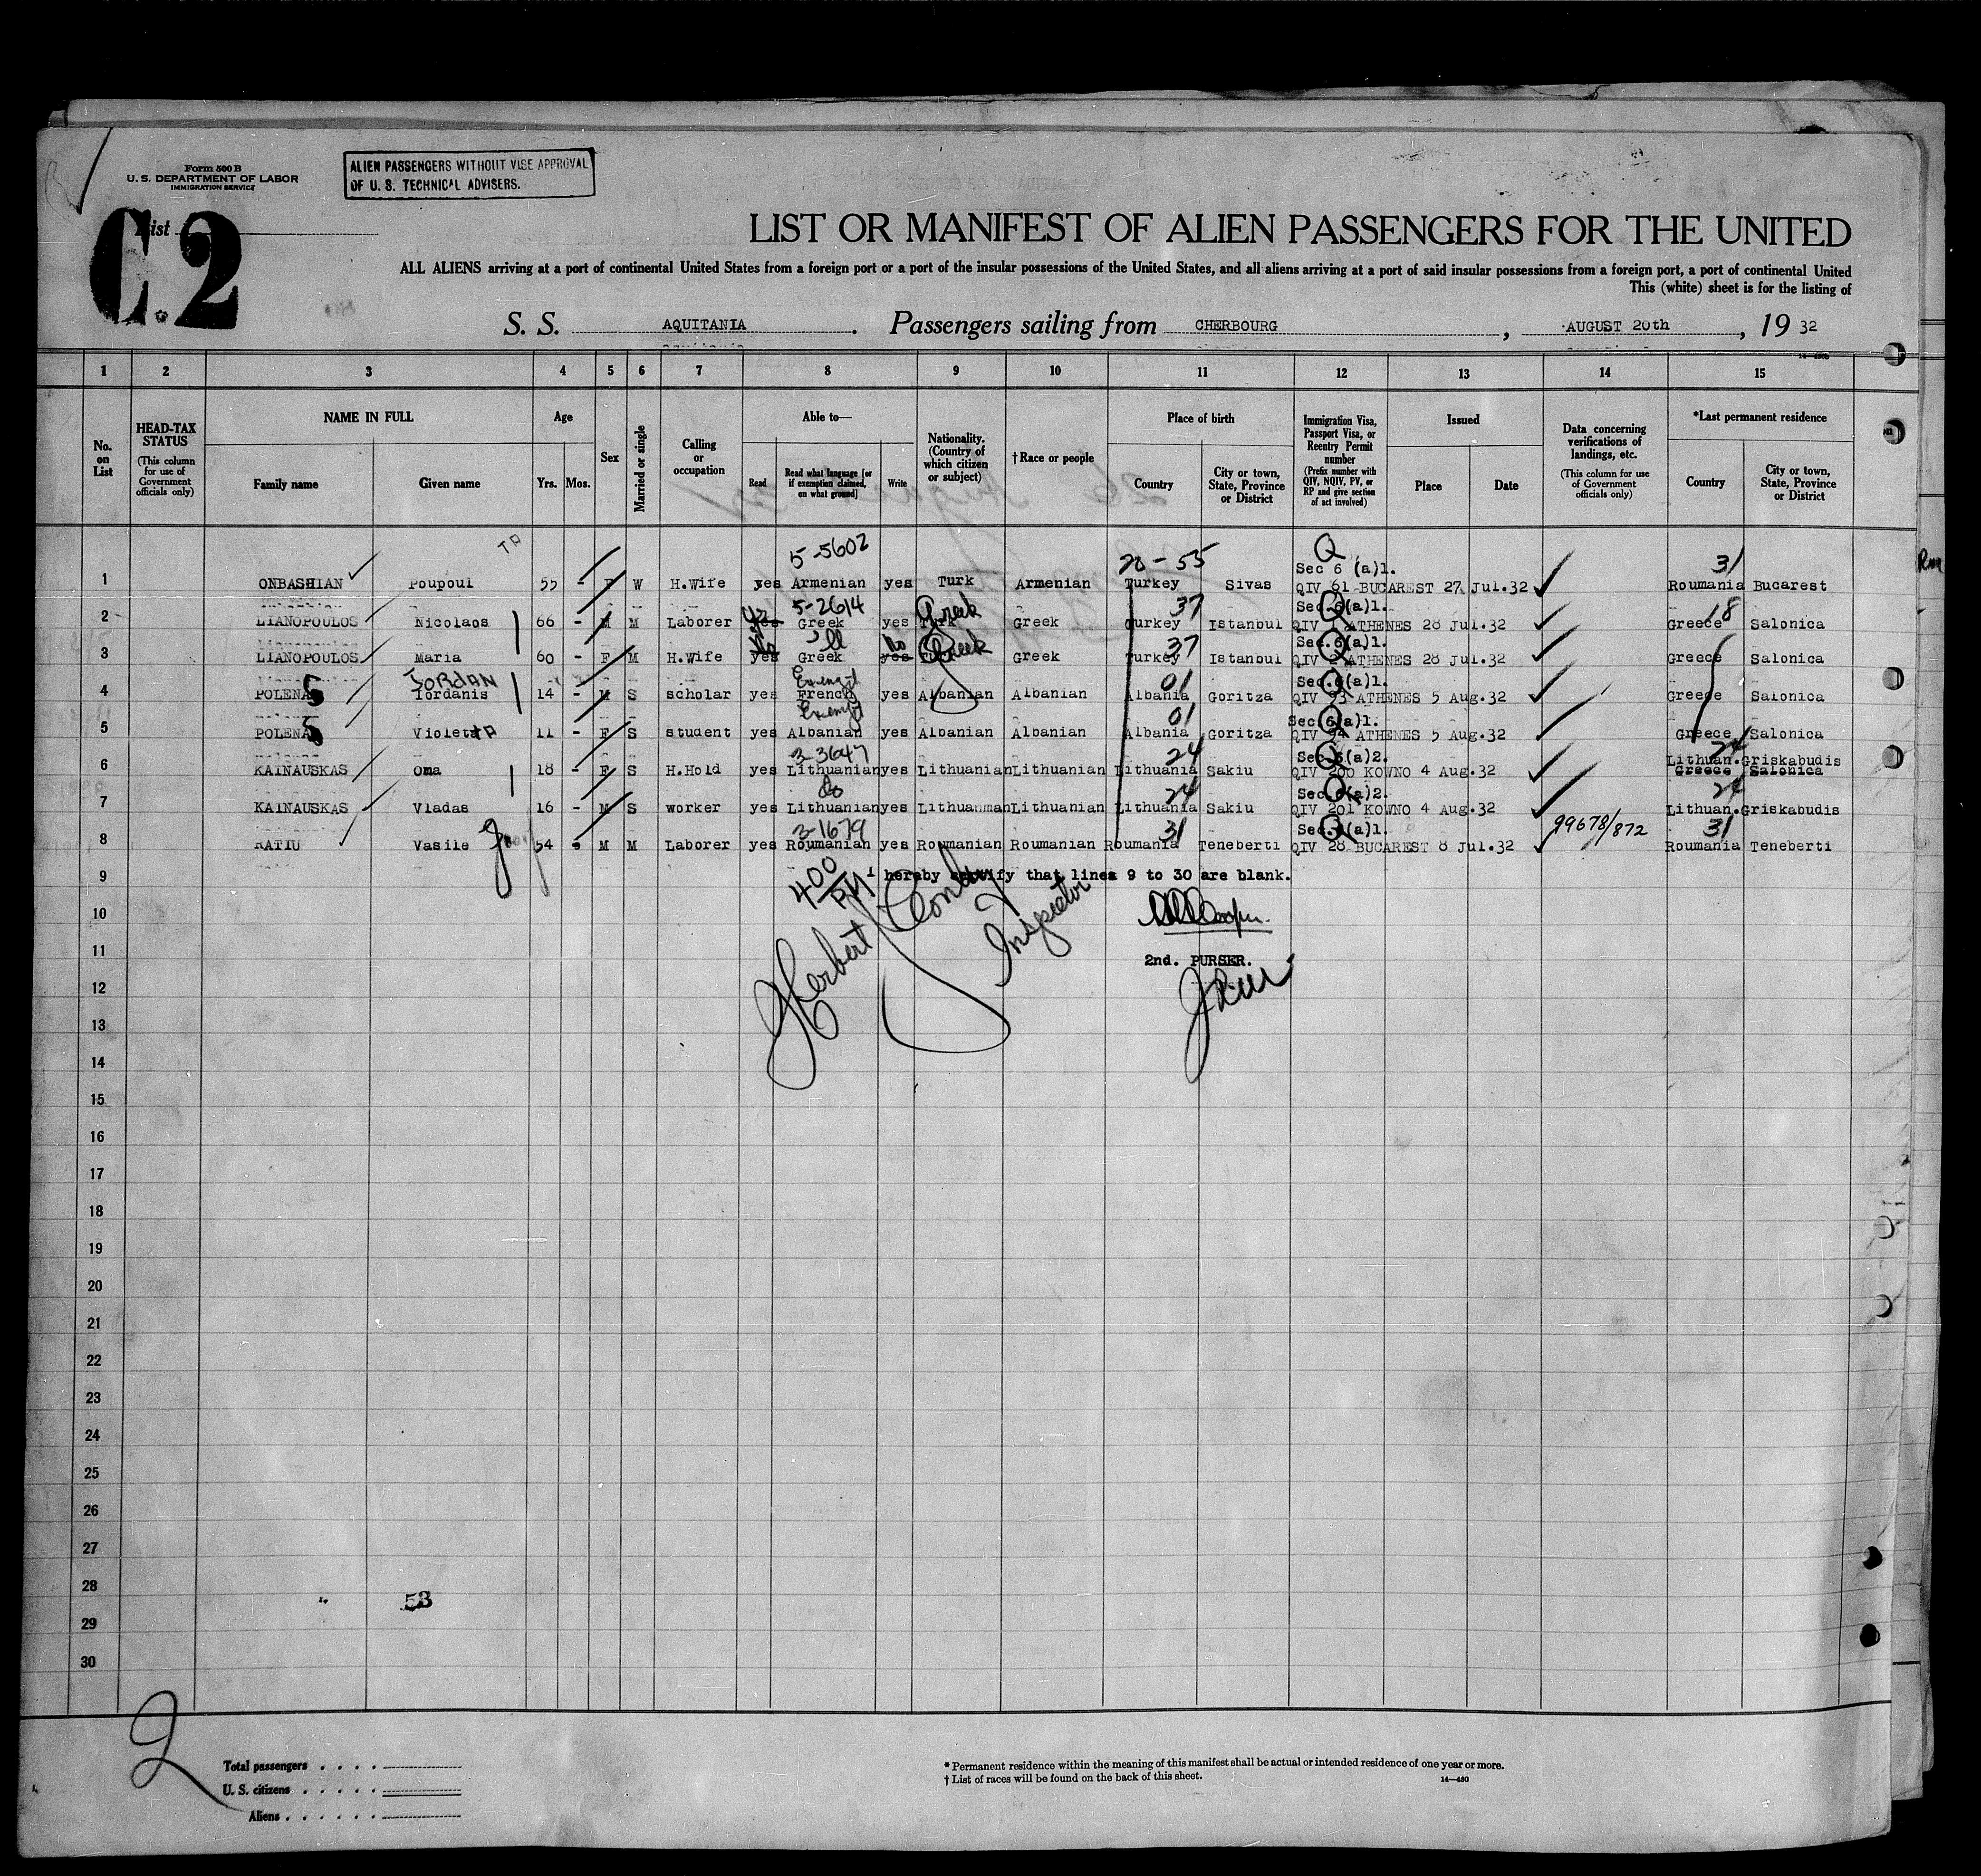 Form 500 B
U. S. DEPARTMENT OF LABOR
IMMIGRATION SERVICE
ALIEN PASSENGERS WITHOUT VISE APPROVAL
OF U. S. TECHNICAL ADVISERS.
List
C.2
LIST OR MANIFEST OF ALIEN PASSENGERS FOR THE UNITED
ALL ALIENS arriving at a port of continental United States from a foreign port or a port of the insular possessions of the United States, and all aliens arriving at a port of said insular possessions from a foreign port, a port of continental United
This (white) sheet is for the listing of
S. S. AQUITANIA . Passengers sailing from CHERBOURG , AUGUST 20th , 19 32
1 2 3 4 5 6 7 8 9 10 11 12 13 14 15
No. on List
HEAD-TAX STATUS (This column for use of Government officials only)
NAME IN FULL Family name Given name
Age Yrs. Mos.
Sex
Married or single
Calling or occupation
Able to— Read Read what language [or if exemption claimed, on what ground] Write
Nationality. (Country of which citizen or subject)
†Race or people
Place of birth Country City or town, State, Province or District
Immigration Visa, Passport Visa, or Reentry Permit number (Prefix number with QIV, NQIV, PV, or RP and give section of act involved)
Issued Place Date
Data concerning verifications of landings, etc. (This column for use of Government officials only)
*Last permanent residence Country City or town, State, Province or District
5-5602 20-55 Q Sec 6 (a)1. 31
1 ONBASHIAN Poupoul 55 - F W H.Wife yes Armenian yes Turk Armenian Turkey Sivas QIV 61 BUCAREST 27 Jul.32 Roumania Bucarest
5-2614 Greek 37 Q Sec.6(a)1. 18
2 LIANOPOULOS Nicolaos 66 - M M Laborer yes Greek yes Turk Greek Turkey Istanbul QIV ATHENES 28 Jul.32 Greece Salonica
No No Greek 37 Q Sec.6(a)1.
3 LIANOPOULOS Maria 60 - F M H.Wife yes Greek yes Greek Turkey Istanbul QIV 2 ATHENES 28 Jul.32 Greece Salonica
JORDAN Exempt 01 Q Sec.6(a)1.
4 POLENA Iordanis 14 - M S scholar yes French yes Albanian Albanian Albania Goritza QIV 93 ATHENES 5 Aug.32 Greece Salonica
Exempt 01 Q Sec 6(a)1.
5 POLENA Violetta 11 - F S student yes Albanian yes Albanian Albanian Albania Goritza QIV 94 ATHENES 5 Aug.32 Greece Salonica
3-3647 24 Q Sec.6(a)2. 24
6 KAINAUSKAS Oma 18 - F S H.Hold yes Lithuanian yes Lithuanian Lithuanian Lithuania Sakiu QIV 200 KOWNO 4 Aug.32 Lithuan. Griskabudis
Greece Salonica
do 24 Q Sec.6(a)2. 24
7 KAINAUSKAS Vladas 16 - M S worker yes Lithuanian yes Lithuanman Lithuanian Lithuania Sakiu QIV 201 KOWNO 4 Aug.32 Lithuan. Griskabudis
3-1679 31 Q Sec. (a)1. 99678/872 31
8 RATIU Vasile 54 - M M Laborer yes Roumanian yes Roumanian Roumanian Roumania Teneberti QIV 28 BUCAREST 8 Jul.32 Roumania Teneberti
9 I hereby certify that lines 9 to 30 are blank.
400
Herbert Inspector
10
11 2nd. PURSER.
12
13
14
15
16
17
18
19
20
21
22
23
24
25
26
27
28
53
29
30
2
Total passengers
U. S. citizens
Aliens
* Permanent residence within the meaning of this manifest shall be actual or intended residence of one year or more.
† List of races will be found on the back of this sheet.
14—430